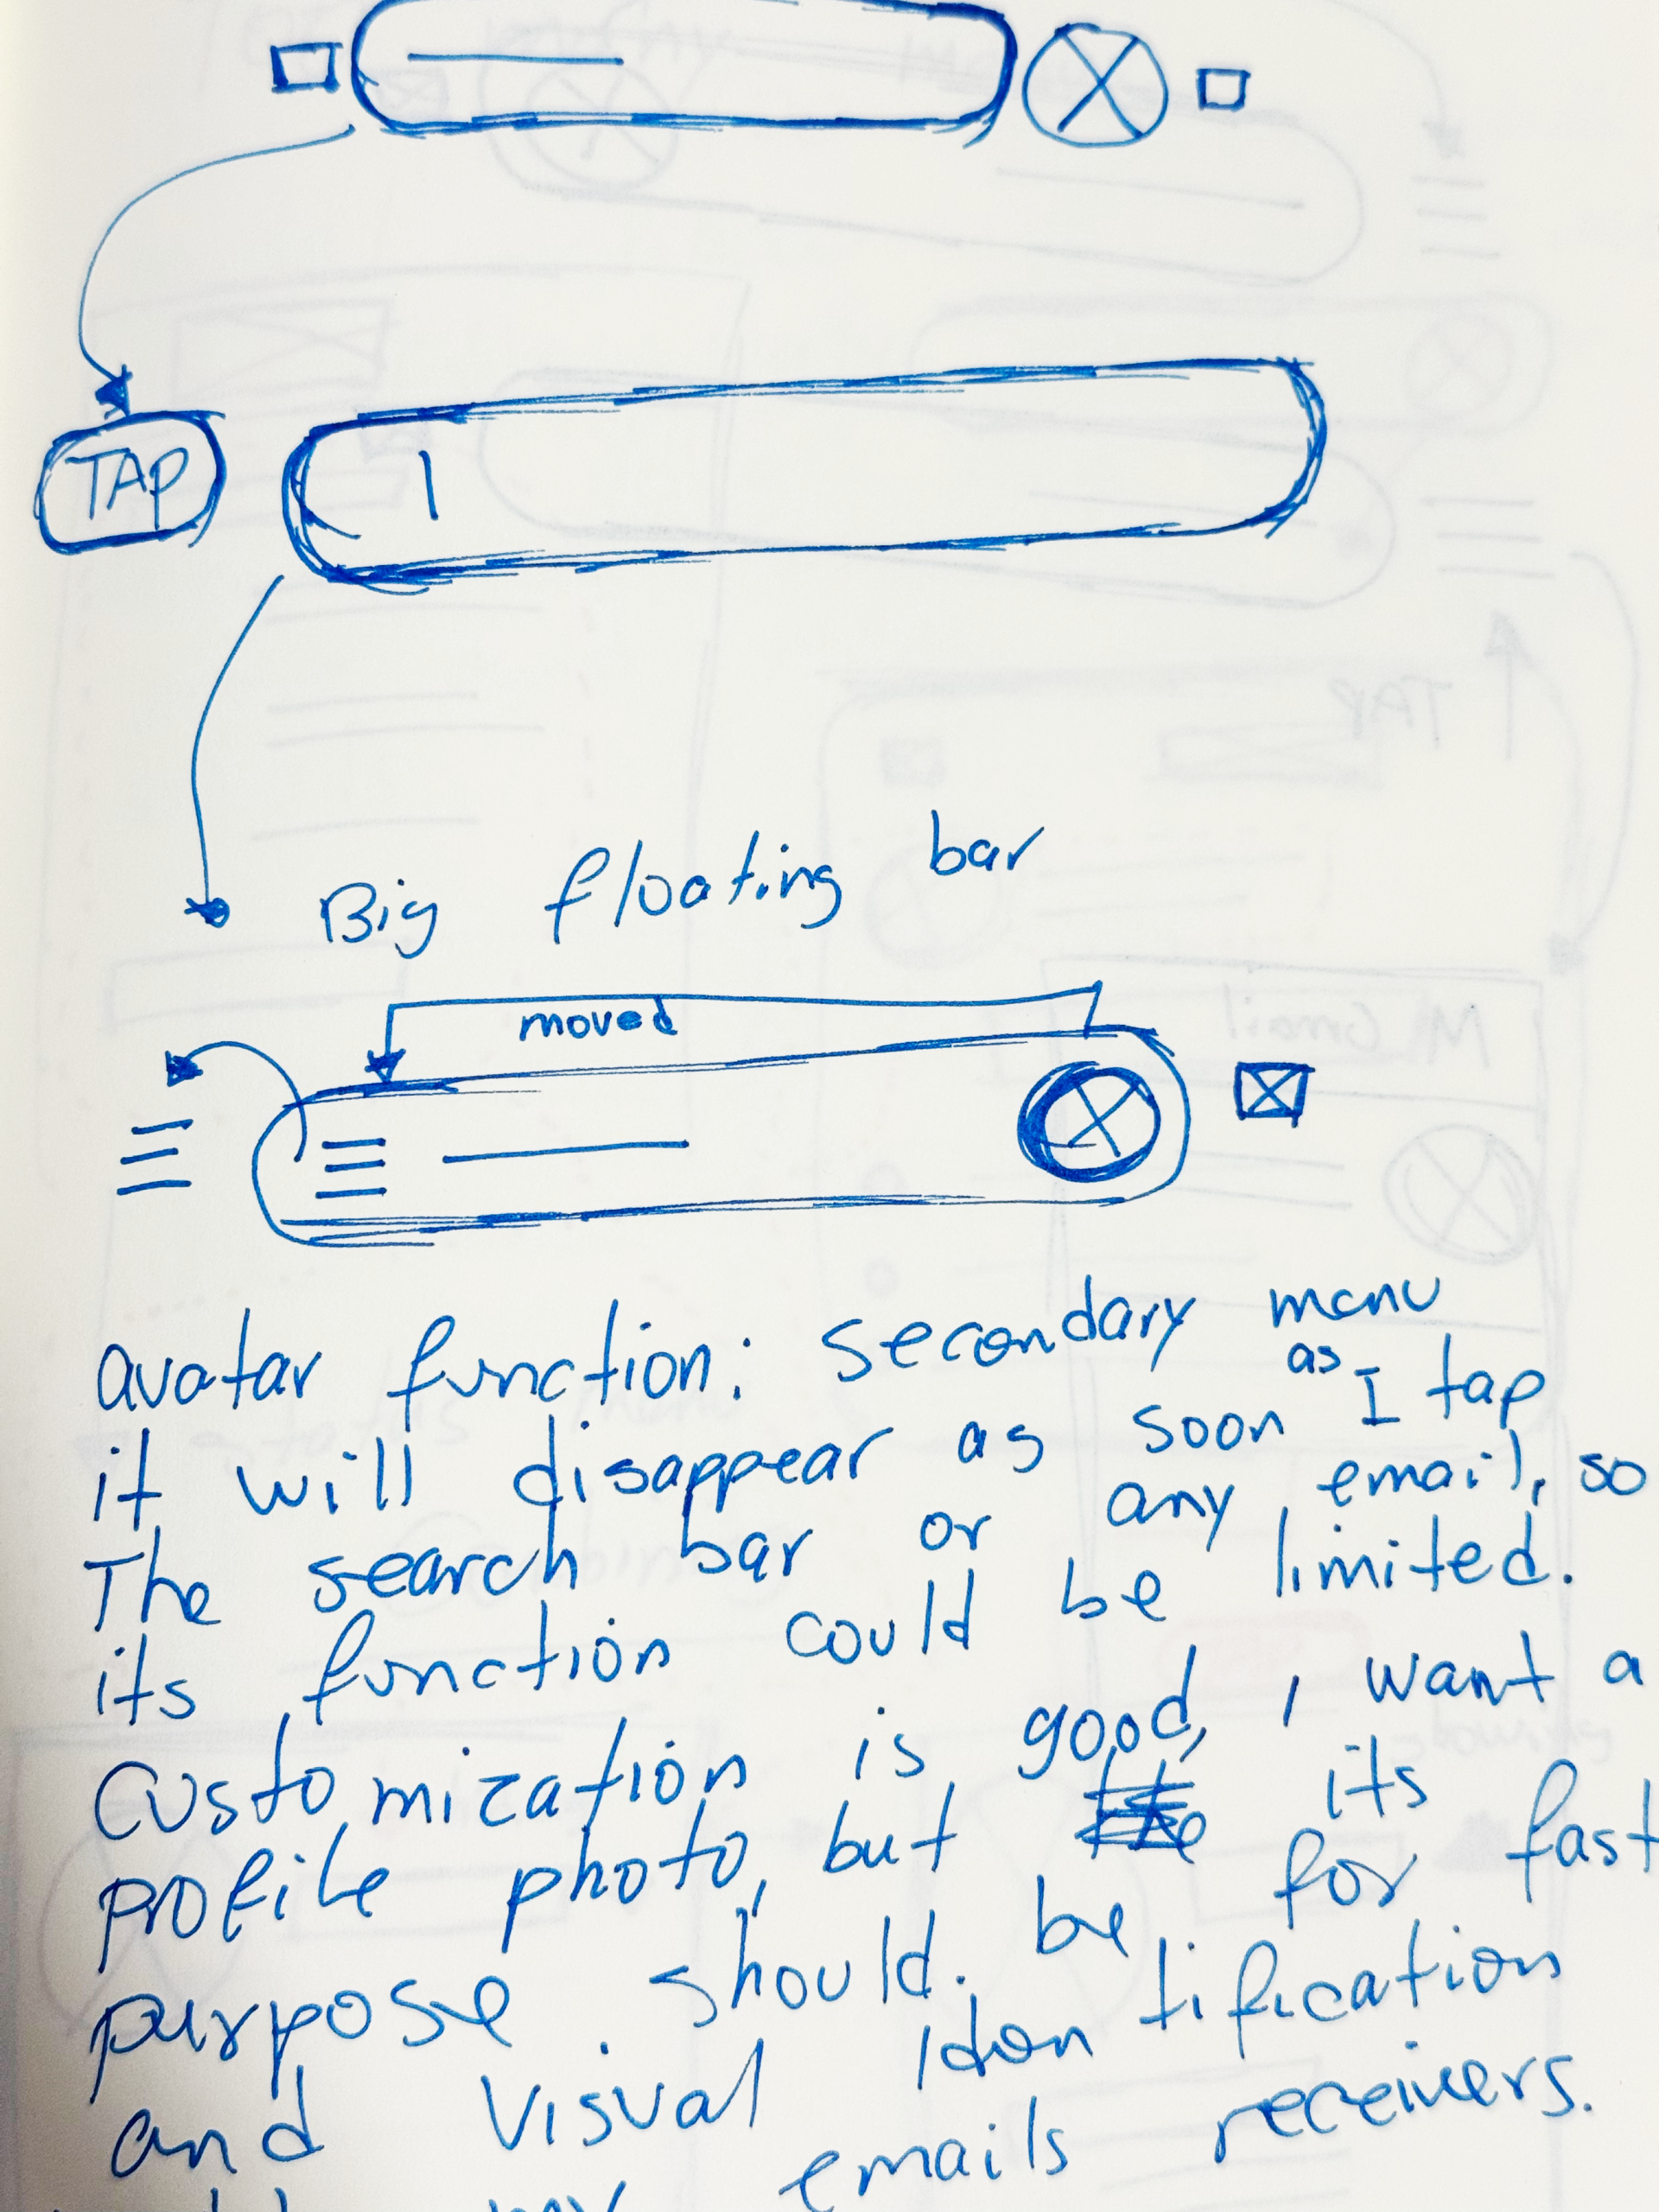 TAP
Big floating bar
moved
avatar function: secondary menu
it will disappear as soon as I tap
The search bar or any email, so
its function could be limited.
Customization is good, I want a
profile photo, but its
purpose should be for fast
and visual idontification
my emails receivers.